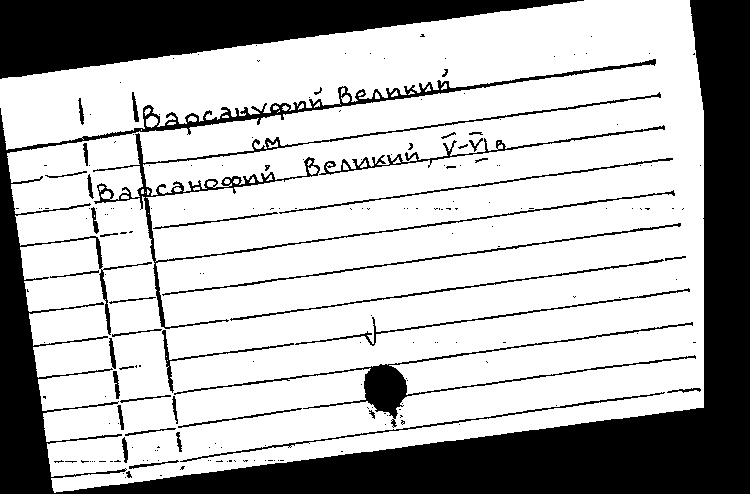 Варсануфий Великий
см
Варсанофий Великий, V-VI в